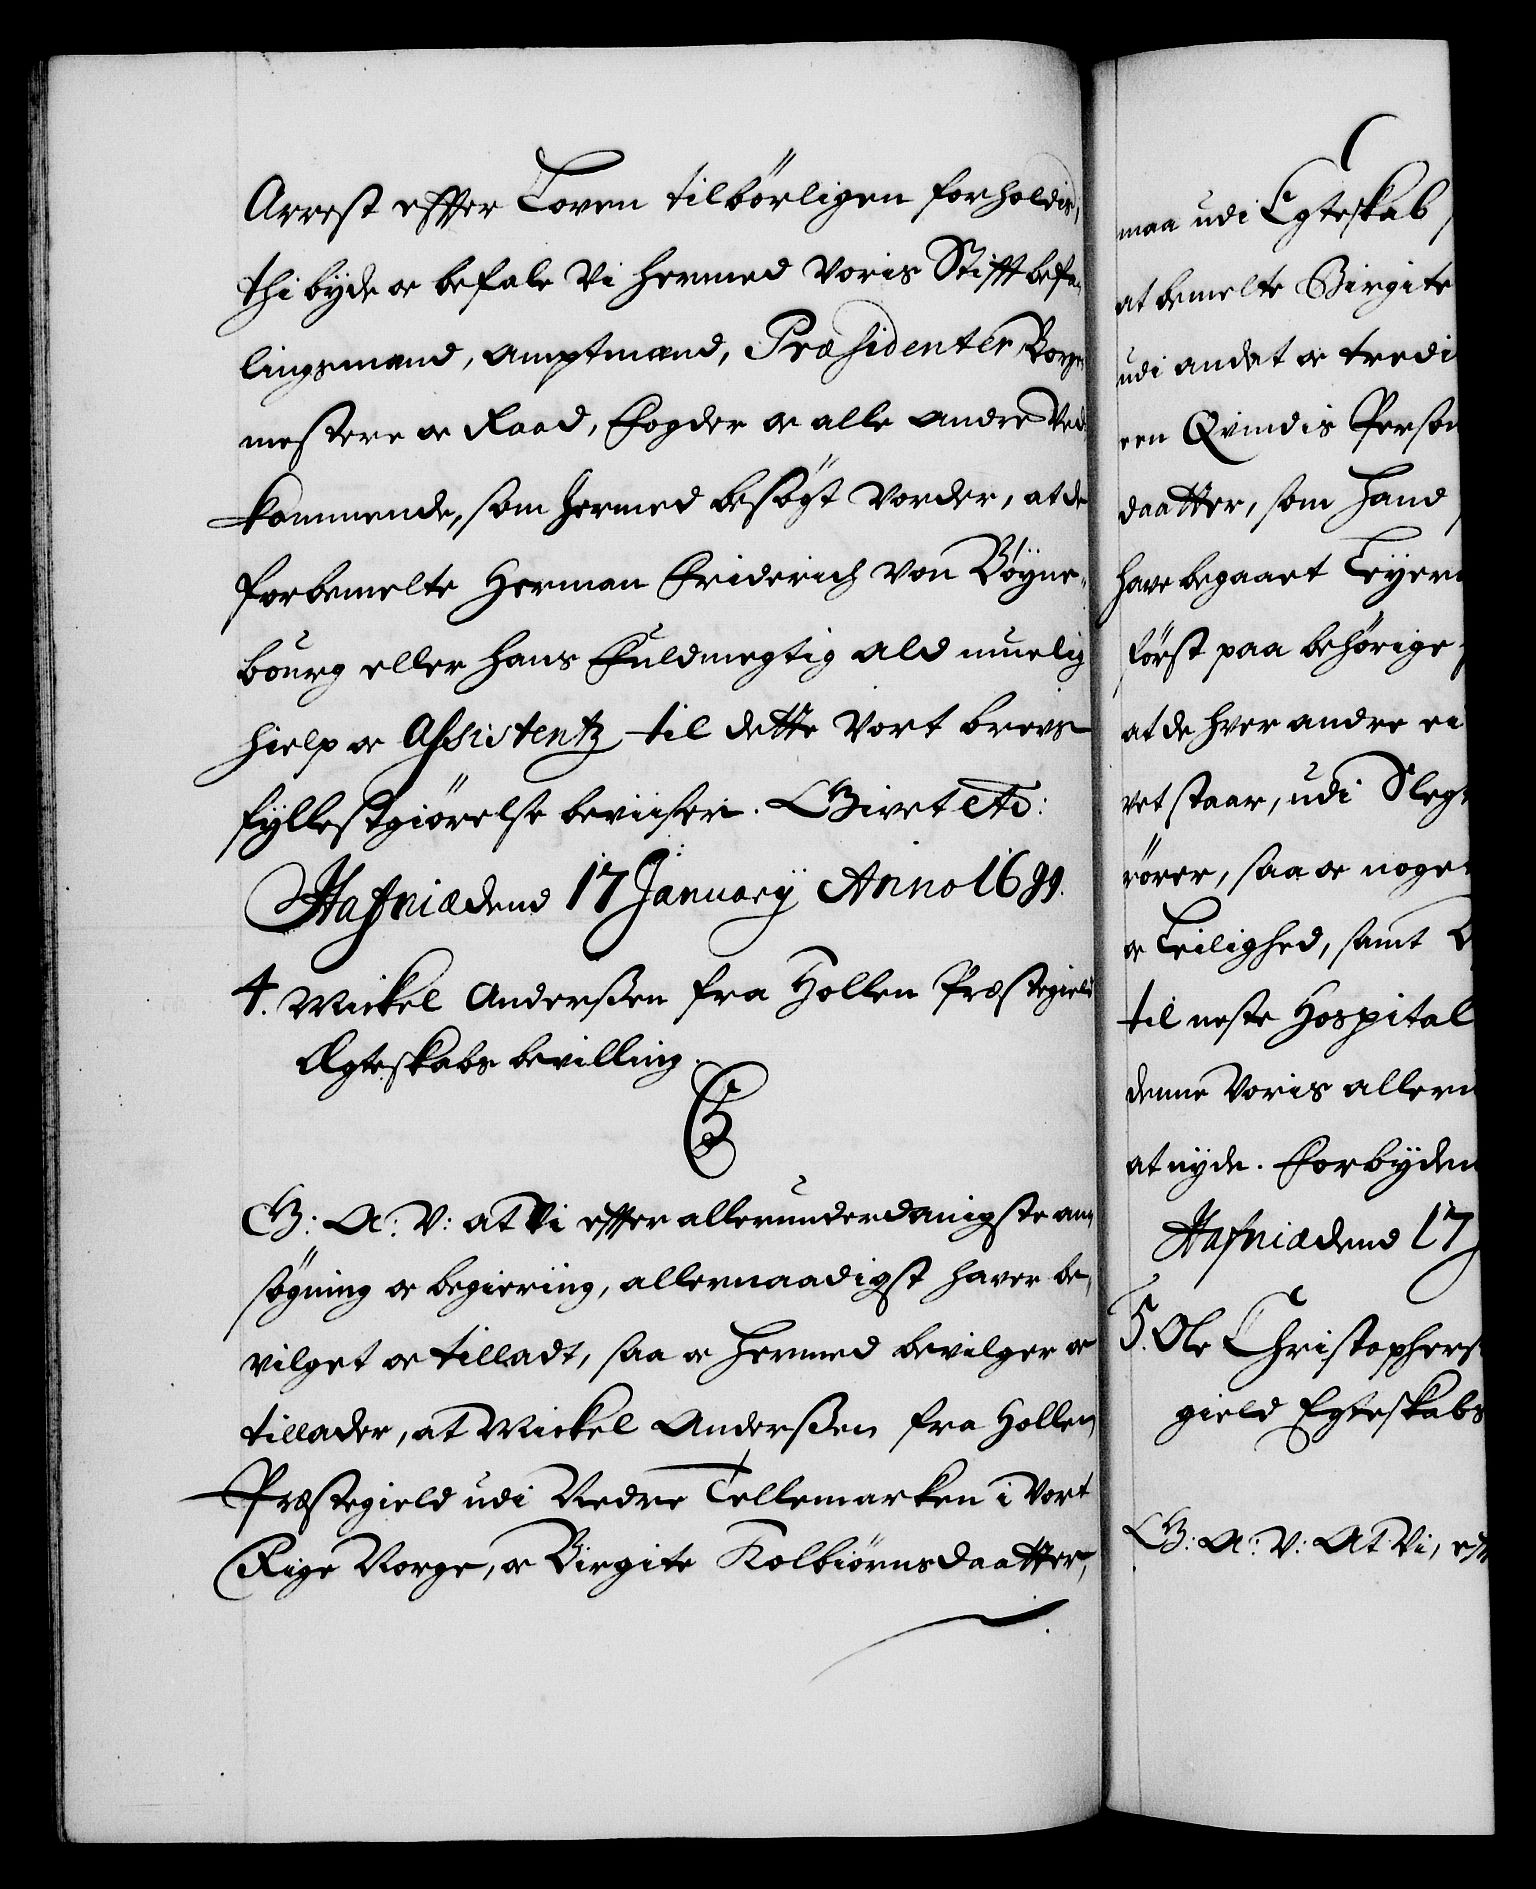 Arrest effter Loven tilbörligen forholdis,
thi byde oc befale Vi hermed Voris Stifftbefa-
lingsmænd, Amptmænd, Præsidenter, Borge
mestere oc Raad, Fogder oc alle andre Ved
kommende, som hermed besøgt vorder, at de
forbemelte Herman Friderich von Böyne-
bourg eller hans Fuldmegtig ald muelig
hielp oc Assistentz til dette Vort brevs
fyllestgiörelse beviiser. Givet etc:
Hafniæ dend 17 January Anno 1691.
4. Mickel Anderßen fra Hollen Præstegield
Ægteskabs bevilling.
C5
G: A: V: at Vi effter allerunderdanigste an-
søgning oc begiering, allernaadigst haver be-
vilget oc tilladt, saa oc hermed bevilger oc
tillader, at Mickel Anderßen fra Hollen
Præstegield udi Nedre Tellemarken i Vort
Rige Norge, oc Birgite Kolbiörnsdaatter,
maa udi Egteskab
at bemelte Birgite
udi andet oc tredi
een Qvindis Person
daatter, som hand
have begaaet Leyerm
först paa behörige
at de hver andre ei
vet staar, udi Slegt
rörer, saa oc noget
oc Leilighed, samt
til neste Hospital
denne Voris allern
at nyde. Forbyden
Hafniæ dend 17
5. Ole Christophers
gield Egteskabs
G: A: V: At Vi, eff